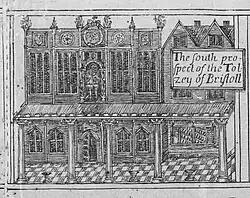 The south pro-
spect of the Tol
zey of Bristoll